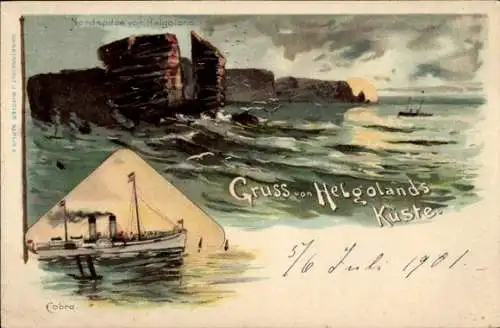 Nordspitze von Helgoland.
Gruss von Helgolands
Küste.
5/6 Juli 1901.
Cobra.